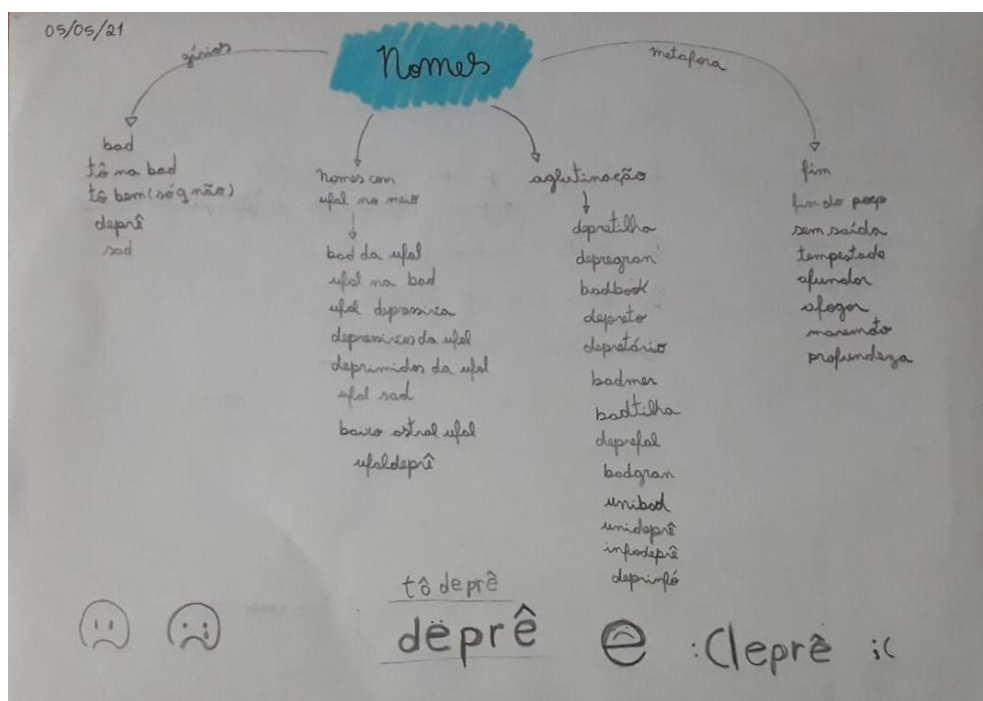 05/05/21
Nomes
gírias
metáfora
bad
tô na bad
tô bem (só q não)
deprê
sad
Nomes com
ufal no meio
bad da ufal
ufal na bad
ufal depressiva
depressivos da ufal
deprimidos da ufal
ufal sad
baixo astral ufal
ufaldeprê
aglutinação
depretilha
depregran
badbook
depreto
depretório
badmer
badtilha
deprefal
badgran
unibad
unideprê
infodeprê
deprinfó
fim
fim do poço
sem saída
tempestade
afundar
afogar
maremoto
profundeza
tô deprê
dëprê
e
:(leprê
;(